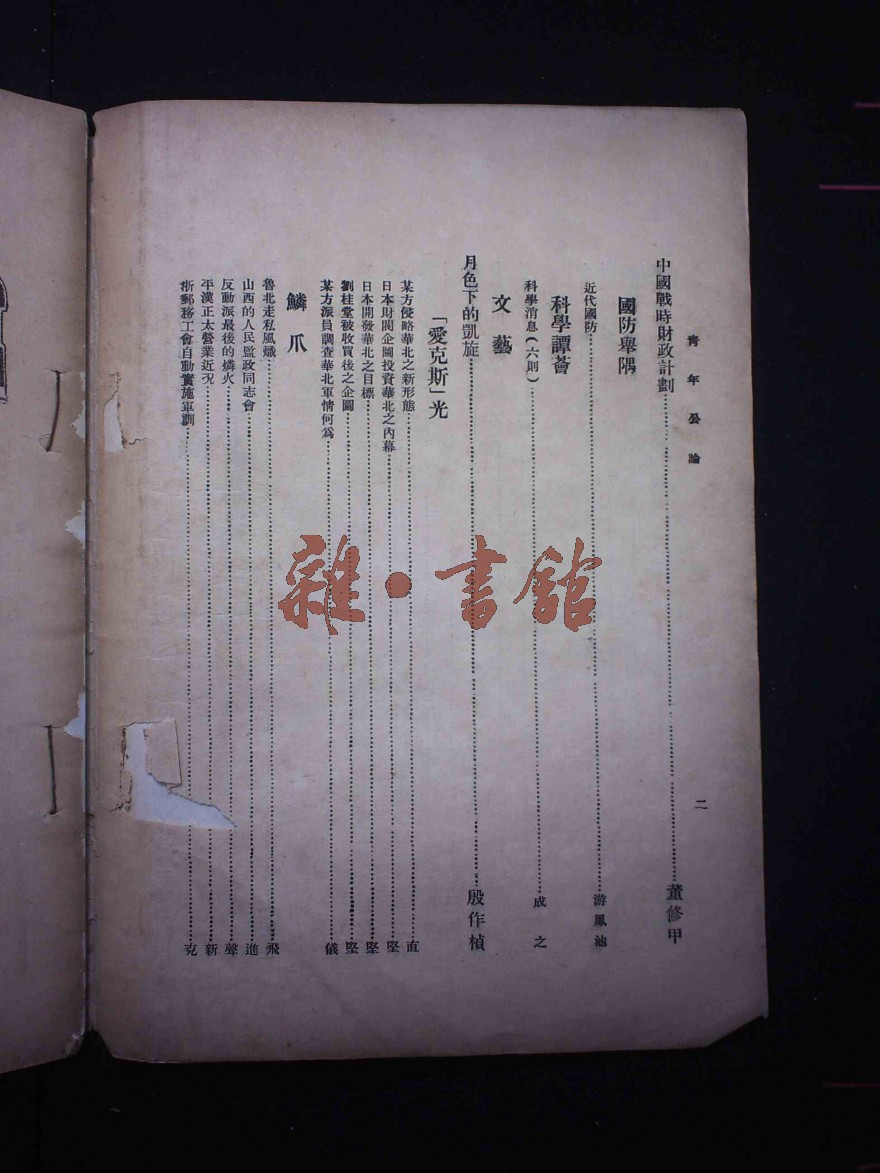 青年公論
二
中國戰時財政計劃……董修甲
國防舉隅
近代國防……游鳳池
科學譚薈
科學消息(六則)……成之
文藝
月色下的凱旋……殷作楨
「愛克斯」光
某方侵略華北之新形態……直
日本財閥企圖投資華北之內幕……堅
日本開發華北之目標……堅
劉桂堂被收買後之企圖……堅
某方派員調查華北軍情何為……儀
鱗爪
魯北走私風熾……飛
山西的人民監政同志會……進
反動派最後的燐火……聲
平漢正太營業近況……新
浙郵務工會自動實施軍訓……克
雜·書館